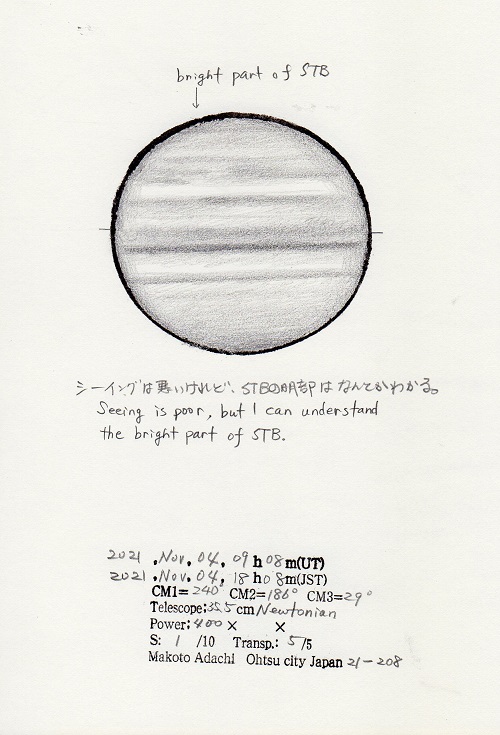 bright part of STB
シーイングは悪いけれど、STBの明部はなんとかわかる。
Seeing is poor, but I can understand
the bright part of STB.
2021 .Nov. 04, 09 h 08 m(UT)
2021 .Nov. 04, 18 h 08 m(JST)
CM1= 240° CM2= 186° CM3= 29°
Telescope; 35.5 cm Newtonian
Power; 400 × ×
S: 1 /10 Transp.: 5 /5
Makoto Adachi Ohtsu city Japan 21-208